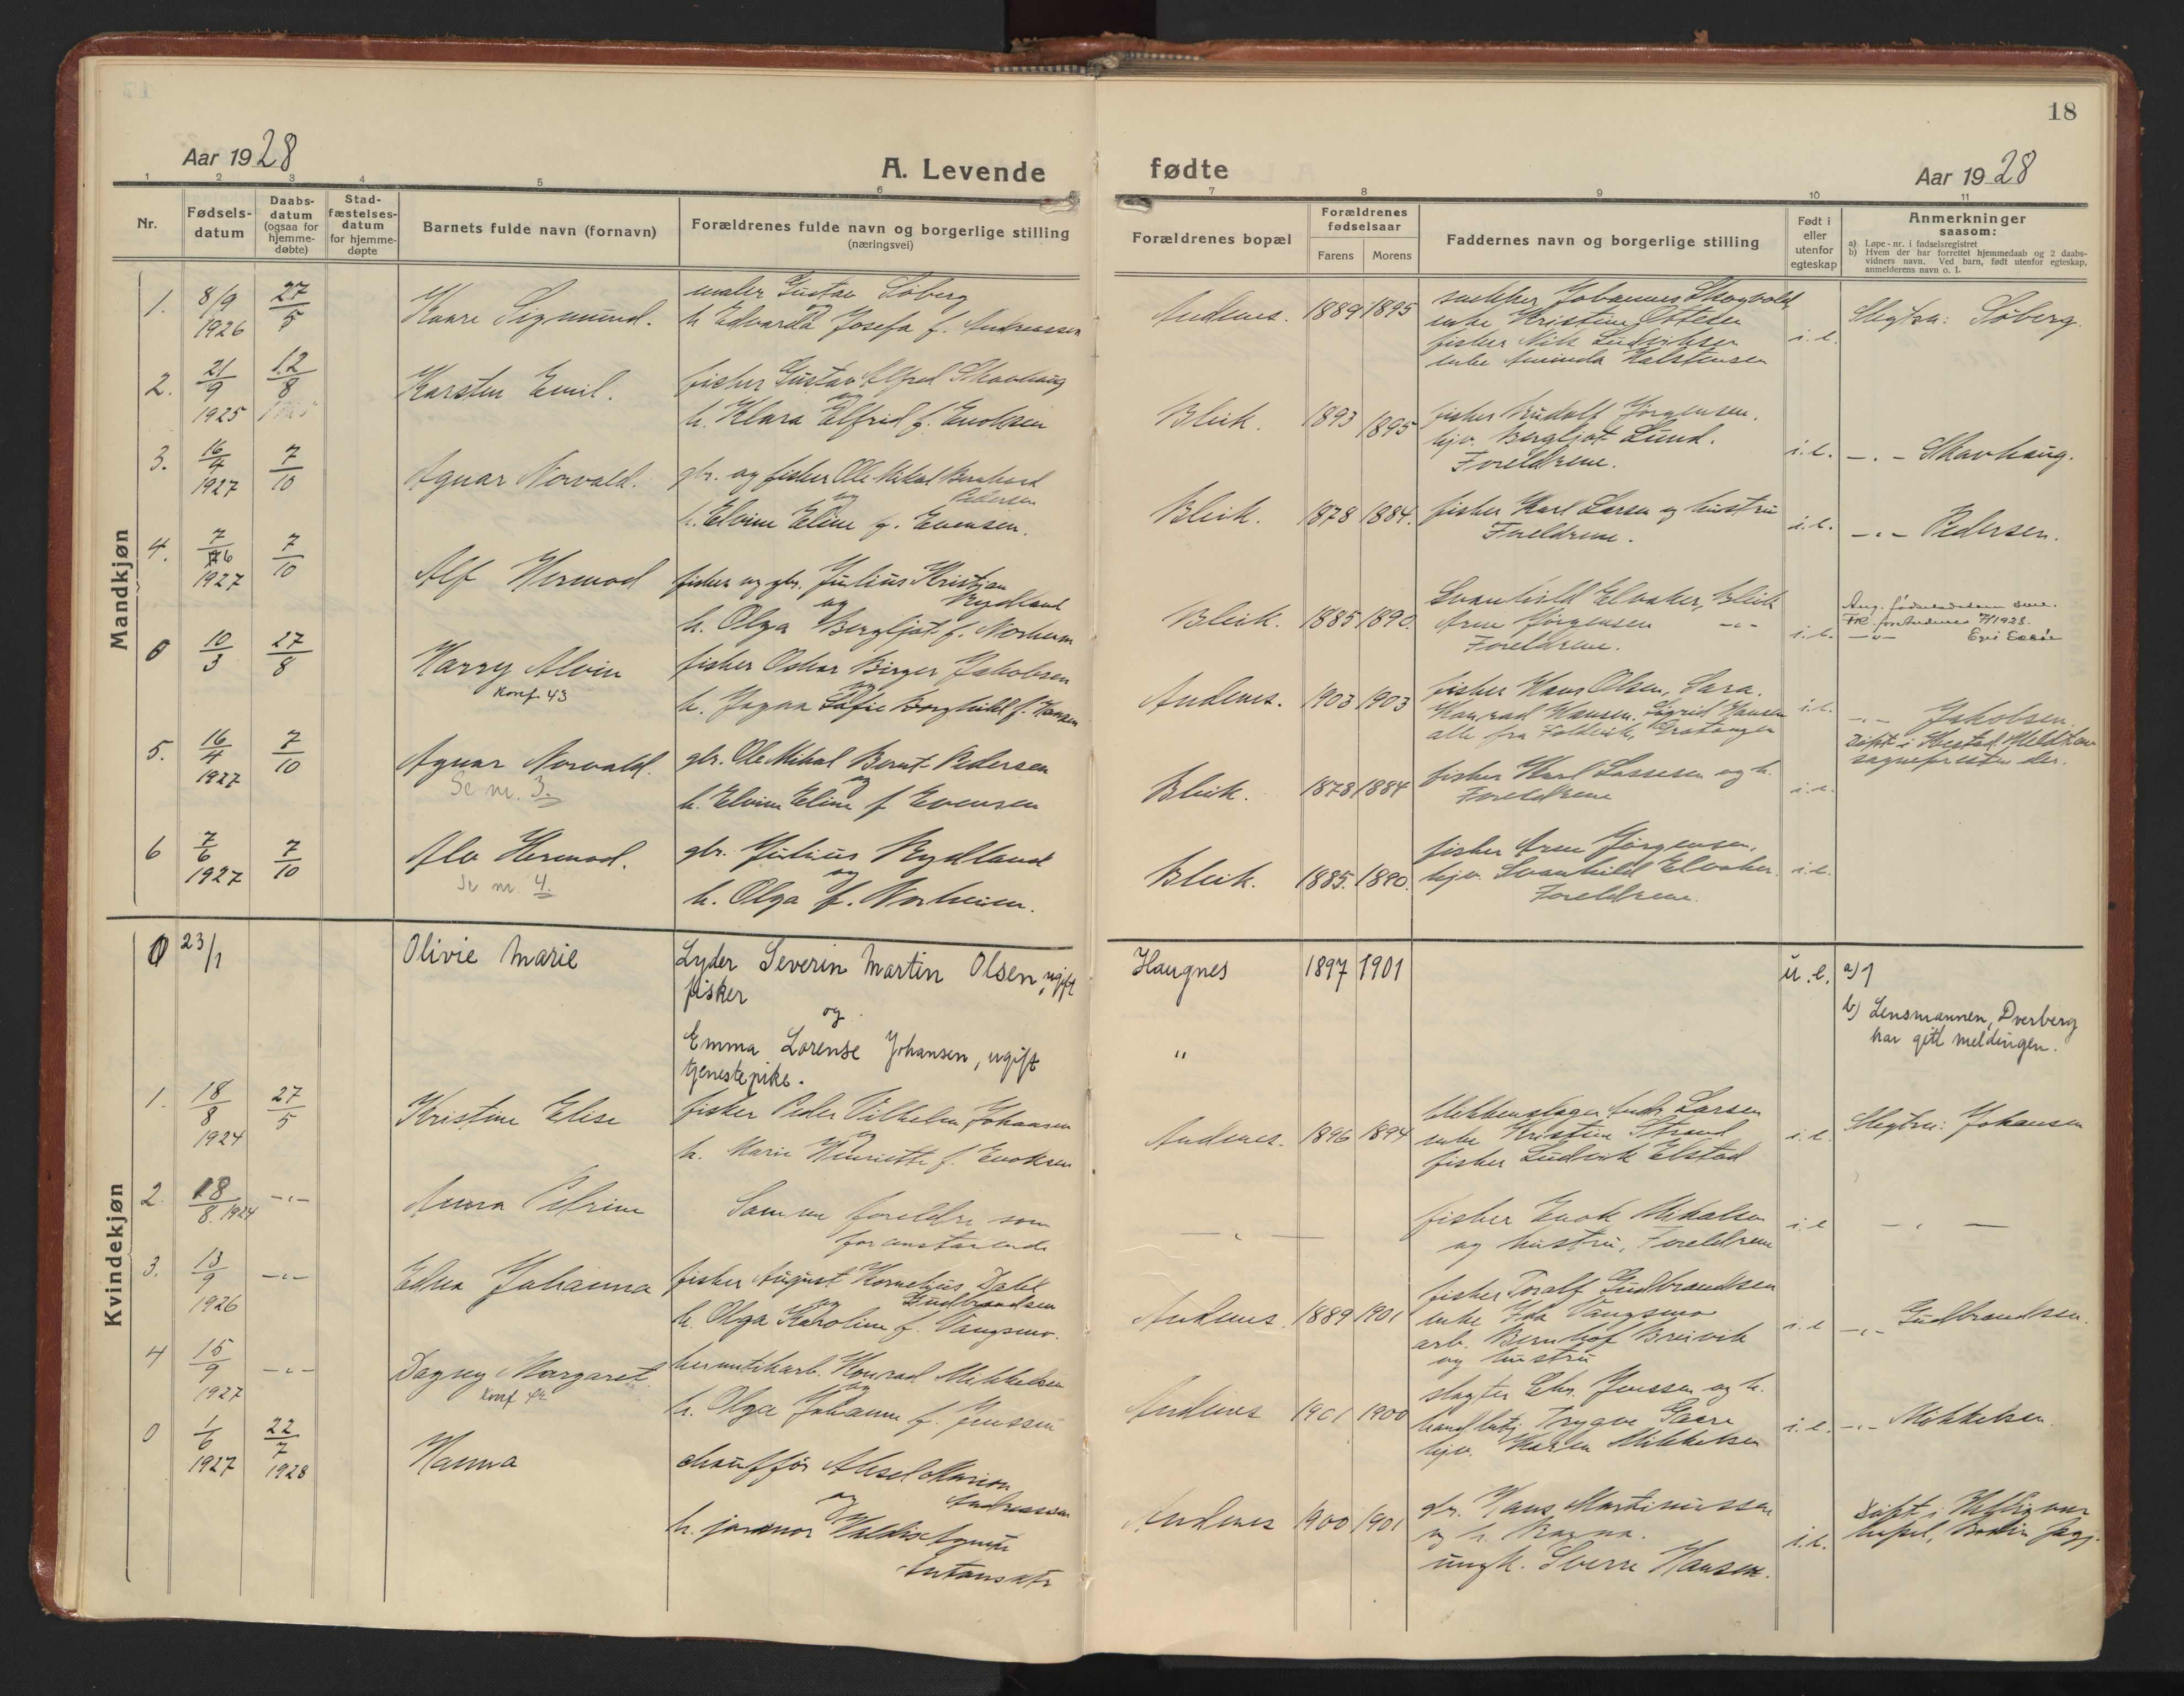 18
Aar 1928
A. Levende
fødte
Aar 1928
1 2 3 4 5 6 7 8 9 10 11
Nr.
Fødsels-
datum
Daabs-
datum
(ogsaa for
hjemme-
døbte)
Stad-
fæstelses-
datum
for hjemme-
døpte
Barnets fulde navn (fornavn)
Forældrenes fulde navn og borgerlige stilling
(næringsvei)
Forældrenes bopæl
Forældrenes
fødselsaar
Farens Morens
Faddernes navn og borgerlige stilling
Født i
eller
utenfor
egteskap
Anmerkninger
saasom:
a) Løpe-nr. i fødselsregistret
b) Hvem der har forrettet hjemmedaab og 2 daabs-
vidners navn. Ved barn, født utenfor egteskap,
anmelderens navn o. l.
Mandkjøn
1. 8/9 1926 27/5
Kaare Sigmund.
maler Gustav Søberg
og
h. Edvarda Josefa f. Andreassen
Andenes. 1889 1895
Johannes Skogvold
enke Kristine Ottesen
fisker Nils Ludviksen
enke Halstensen
i.e.
Slegtsn: Søberg.
2. 21/9 1925 12/8
Karsten Emil.
fisker Gustav Alfred Skavhaug
og
h. Klara Elfrid f. Enoksen
Bleik. 1893 1895
fisker Rudolf Jørgensen.
hjv. Bergljot Lund.
Foreldrene.
i.e. -.- Skavhaug.
3. 16/4 1927 7/10
Agnar Norvald.
gbr. og fisker Ole Mikal Bernhard
og Pedersen
h. Elvine Eline f. Evensen.
Bleik. 1878 1884.
fisker Karl Larsen og hustru
Foreldrene.
i.e. -.- Pedersen.
4. 7/6 1927 7/10
Alf Hermod
fisker og gbr. Julius Kristian
og Rydland
h. Olga Bergljot f. Norheim
Bleik. 1885 1890.
Svanhild Elvaker, Bleik
Arne Jørgensen -"-
Foreldrene.
i.e. -"-
0 10/3 27/8
Harry Alvin
Konf. 43
fisker Oskar Birger Jakobsen
og
h. Jagna Sofie Borghild f. Hansen
Andenes. 1903 1903
fisker Hans Olsen, Sara.
Konrad Hansen. Sigrid Hansen
alle fra Foldvik, Gratangen
i.e. -.- Jakobsen.
Døpt i
sognepresten der.
5. 16/4 1927 7/10
Agnar Norvald.
Se nr. 3.
gbr. Ole Mikal Bernt Pedersen
og
h. Elvine Eline f Evensen
Bleik. 1878 1884
fisker Karl Lassesen og h.
Foreldrene
i.e.
6 7/6 1927 7/10
Alv Hermod.
Se nr. 4.
gbr. Julius Rydland
og
h. Olga f. Norheim.
Bleik. 1885. 1890.
fisker Arne Jørgensen,
hjv. Svanhild Elvaker.
Foreldrene.
i.e.
Kvindekjøn
0 23/1
Olivie Marie
Lyder Severin Martin Olsen, ugift
fisker
og
Emma Lorense Johansen, ugift
tjenestepike.
Haugnes 1897 1901
"
u.e.
a) 1
b) Lensmannen, Dverberg
har gitt meldingen.
1. 18/8 1924 27/5
Kristine Elise
fisker Peder Vilhelm Johansen
og
h. Marie Henriette f. Enoksen
Andenes. 1896 1894
blikkenslager Andr. Larsen
enke Kristine Strand
fisker Ludvik Elstad
i.e.
Slegtsn: Johansen
2. 18/8. 1924 -"-
Anna Petrine
Samme foreldre som
foranstaaende
- " -
fisker Enok Mikalsen
og hustru, Foreldrene
i.e - " -
3. 13/9 1926 -"-
Edna Johanna
fisker August Kornelius Dahl
og Gudbrandsen
h. Olga Karoline f. Vangsmo.
Andenes. 1889 1901
fisker Toralf Gudbrandsen
enke Ida Vangsmo
arb. Bernhof Breivik
og hustru
i.e -"- Gudbrandsen.
4 15/9 1927 -"-
Dagny Margaret.
Konf 42
hermetikarb. Konrad Mikkelsen
og
h. Olga Johanne f. Jenssen
Andenes 1901 1900
slagter Chr. Jenssen og h.
handl.betj. Trygve Gaare
hjv. Karen Mikkelsen
i.e. -"- Mikkelsen.
0 1/6 1927 22/7 1928
Hanna
chauffør Aksel Marion
og Andreassen
h. Valdis Agnete
Andenes 1900 1901
gbr. Hans Martinussen
og h. Ragna.
ungk. Sverre Hansen.
i.e.
Døpt i Helligvær
kapel, Bodin